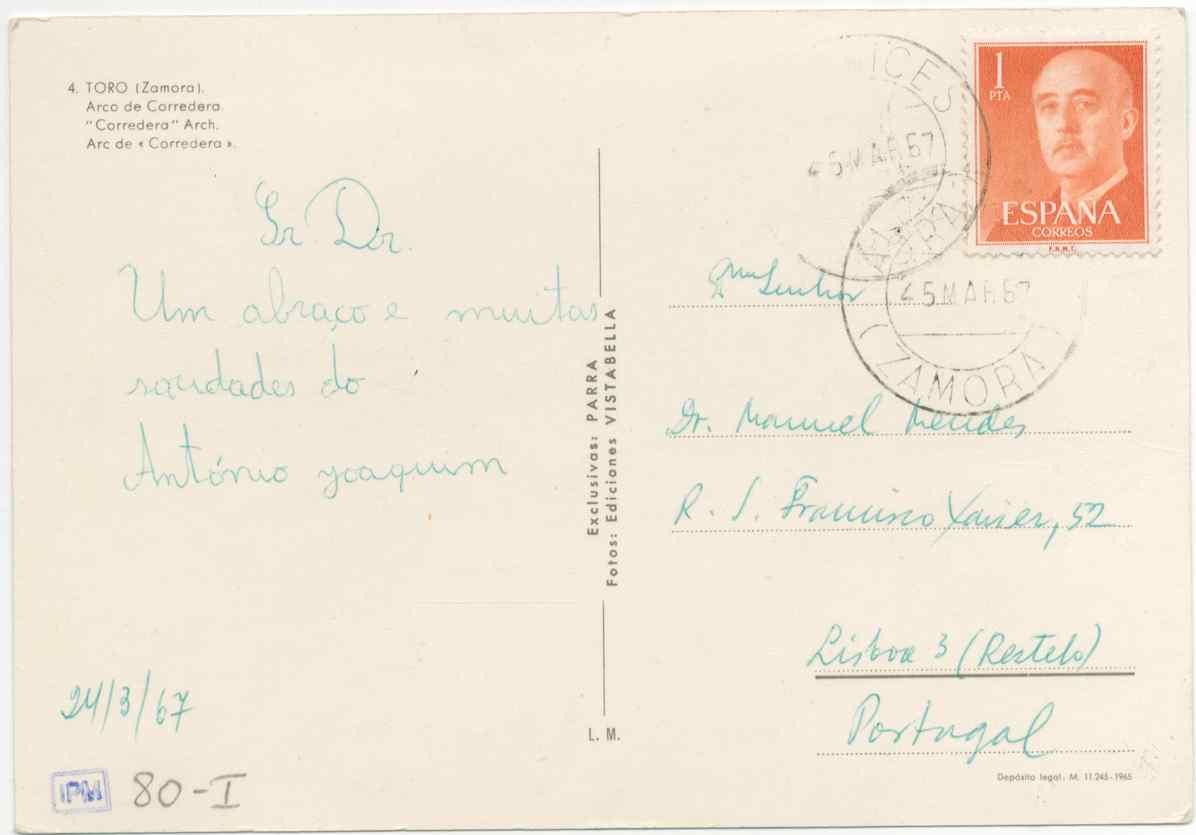 4. TORO (Zamora).
Arco de Corredera.
"Corredera" Arch.
Arc de « Corredera ».
Sr Dr.
Um abraço e muitas
saudades do
António Joaquim
24/3/67
IPM 80-I
Exclusivas: PARRA
Fotos: Ediciones VISTABELLA
L. M.
1
PTA
ESPAÑA
CORREOS
F.N.M.T.
5 MAR 67
5 MAR 67
(ZAMORA)
Senhor
Dr. Manuel Mendes
R. S. Francisco Xavier, 52
Lisboa 3 (Restelo)
Portugal
Depósito legal: M. 11.245-1965